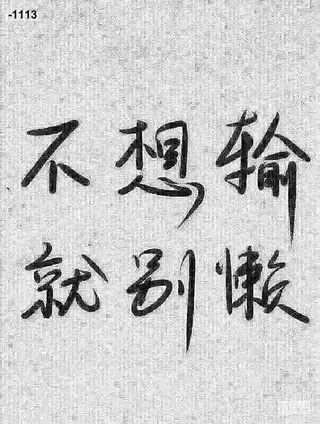 -1113
不想输
就别懒